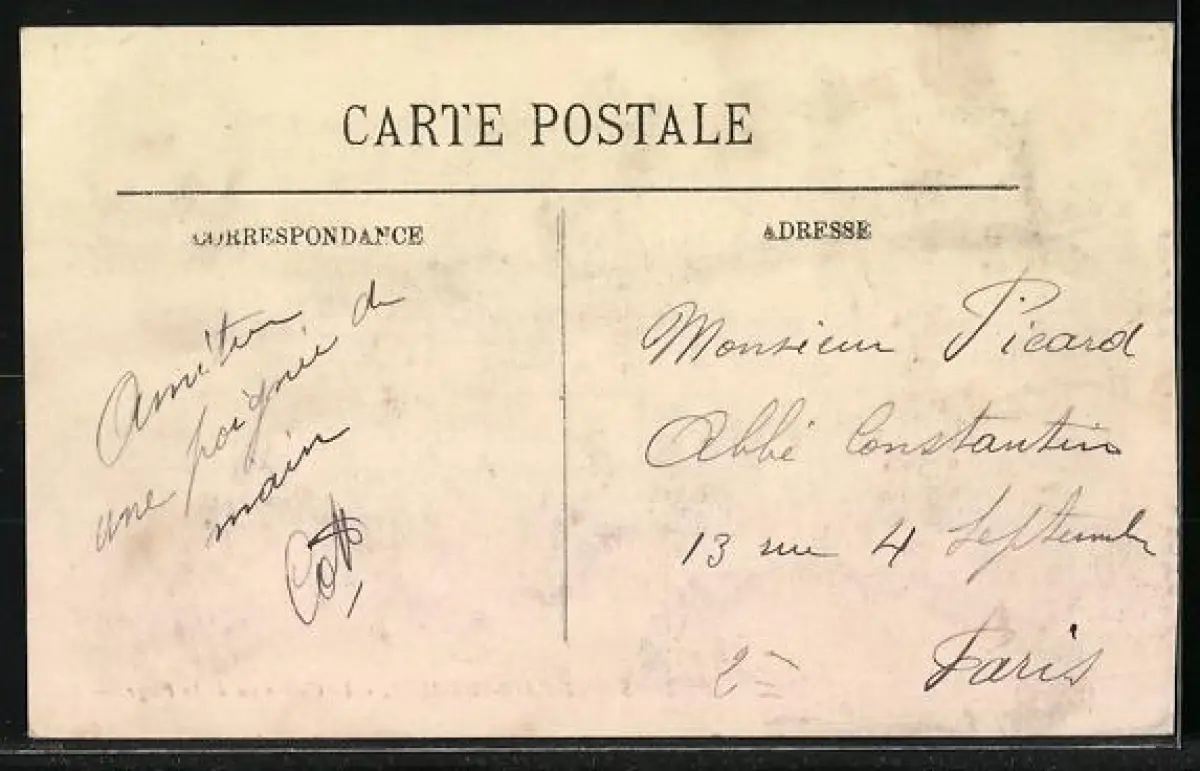 CARTE POSTALE
CORRESPONDANCE
ADRESSE
une poignée de
main
Monsieur Picard
Abbé Constantin
13 rue 4 Septembre
Paris